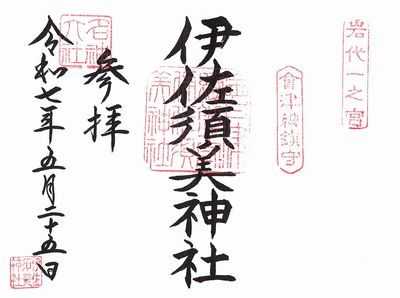 岩代一之宮
會津總鎮守
伊佐須美神社
名神大社
參拝
令和七年五月二十五日